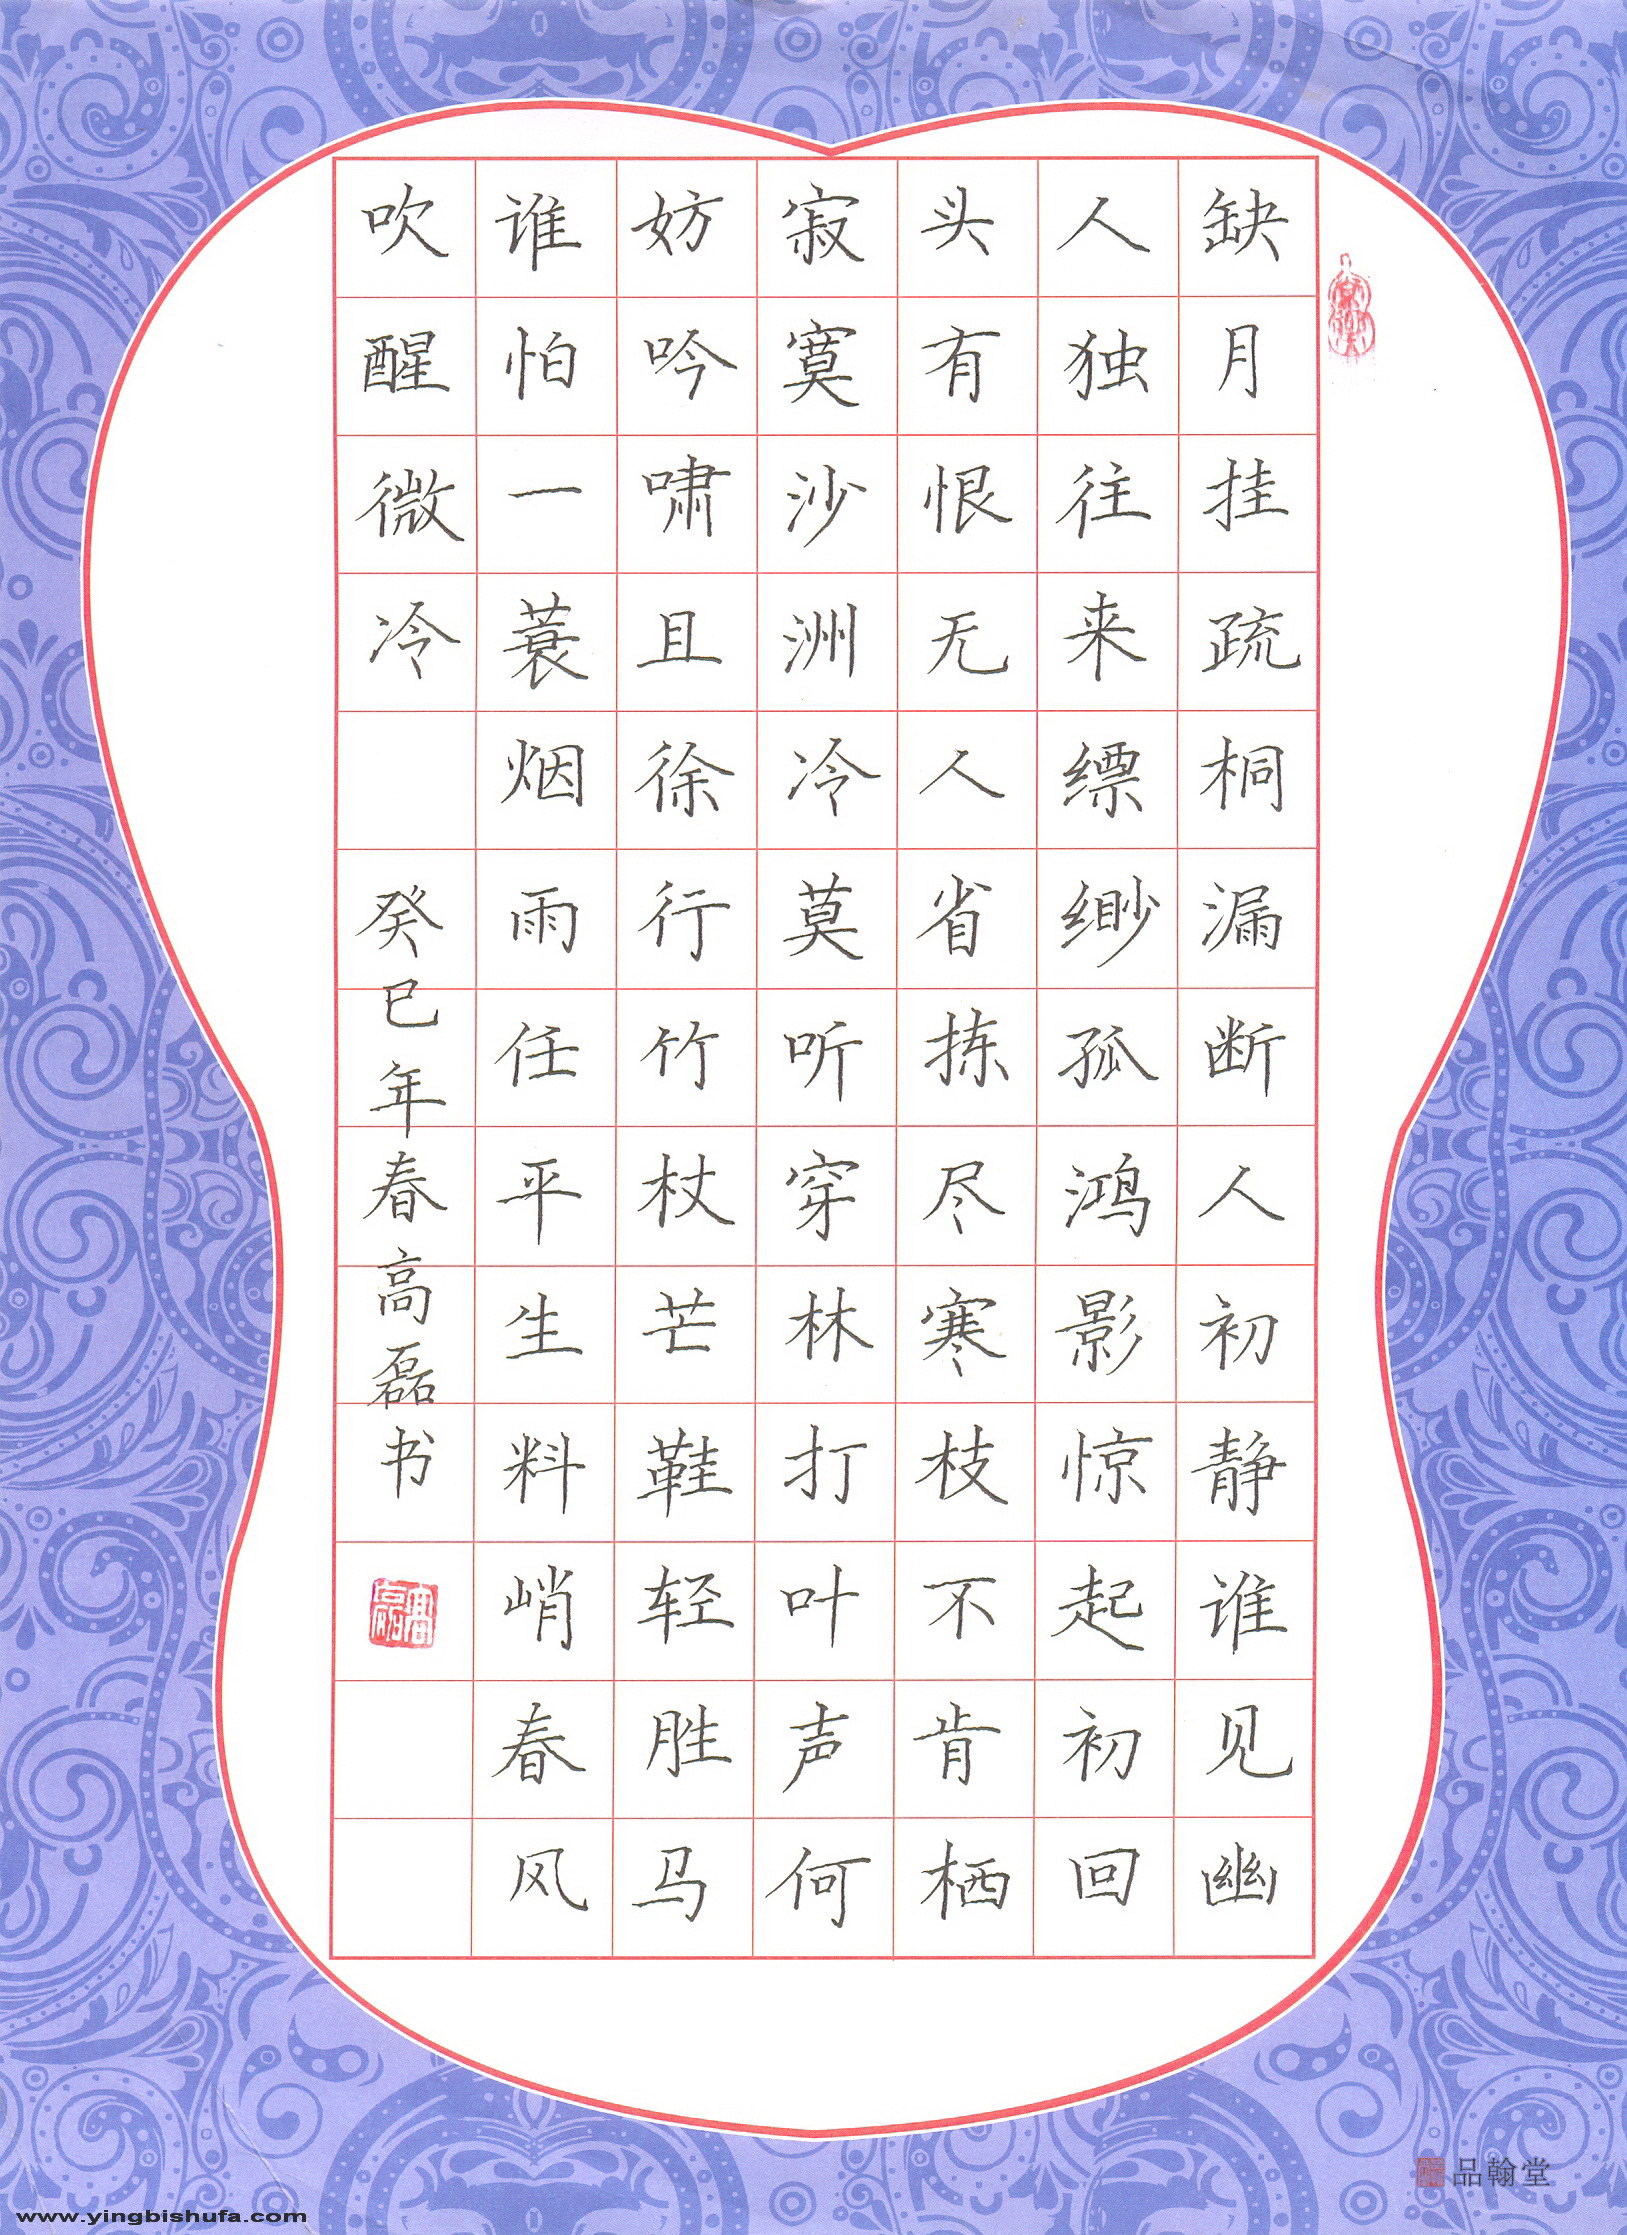 缺月挂疏桐漏断人初静谁见幽
人独往来缥缈孤鸿影惊起初回
头有恨无人省拣尽寒枝不肯栖
寂寞沙洲冷莫听穿林打叶声何
妨吟啸且徐行竹杖芒鞋轻胜马
谁怕一蓑烟雨任平生料峭春风
吹醒微冷
癸巳年春高磊书
高磊
品翰堂
www.yingbishufa.com